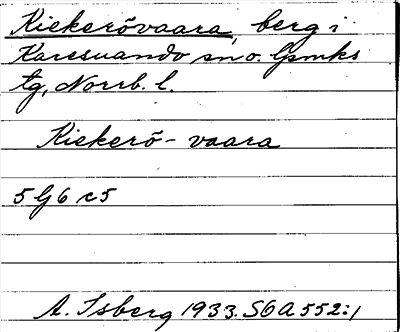 Kiekerövaara, berg i
Karesuando sn o. lpmks
tg, Norrb. l.
Kiekerö-vaara
5 G 6 c 5
A. Isberg 1933. SOA 552:1